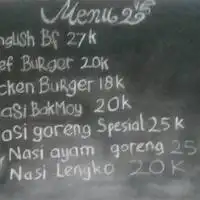 Menu
nglish Bf 27k
ef Burger 20k
cken Burger 18k
asi BakMoy 20k
asi goreng Spesial 25k
Nasi ayam goreng 25
Nasi Lengko 20K